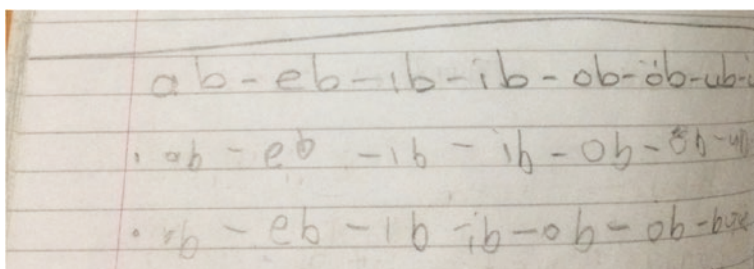 ab-eb-ıb-ib-ob-öb-ub-
ab-eb-ıb-ib-ob-öb-ub
ab-eb-ıb-ib-ob-öb-